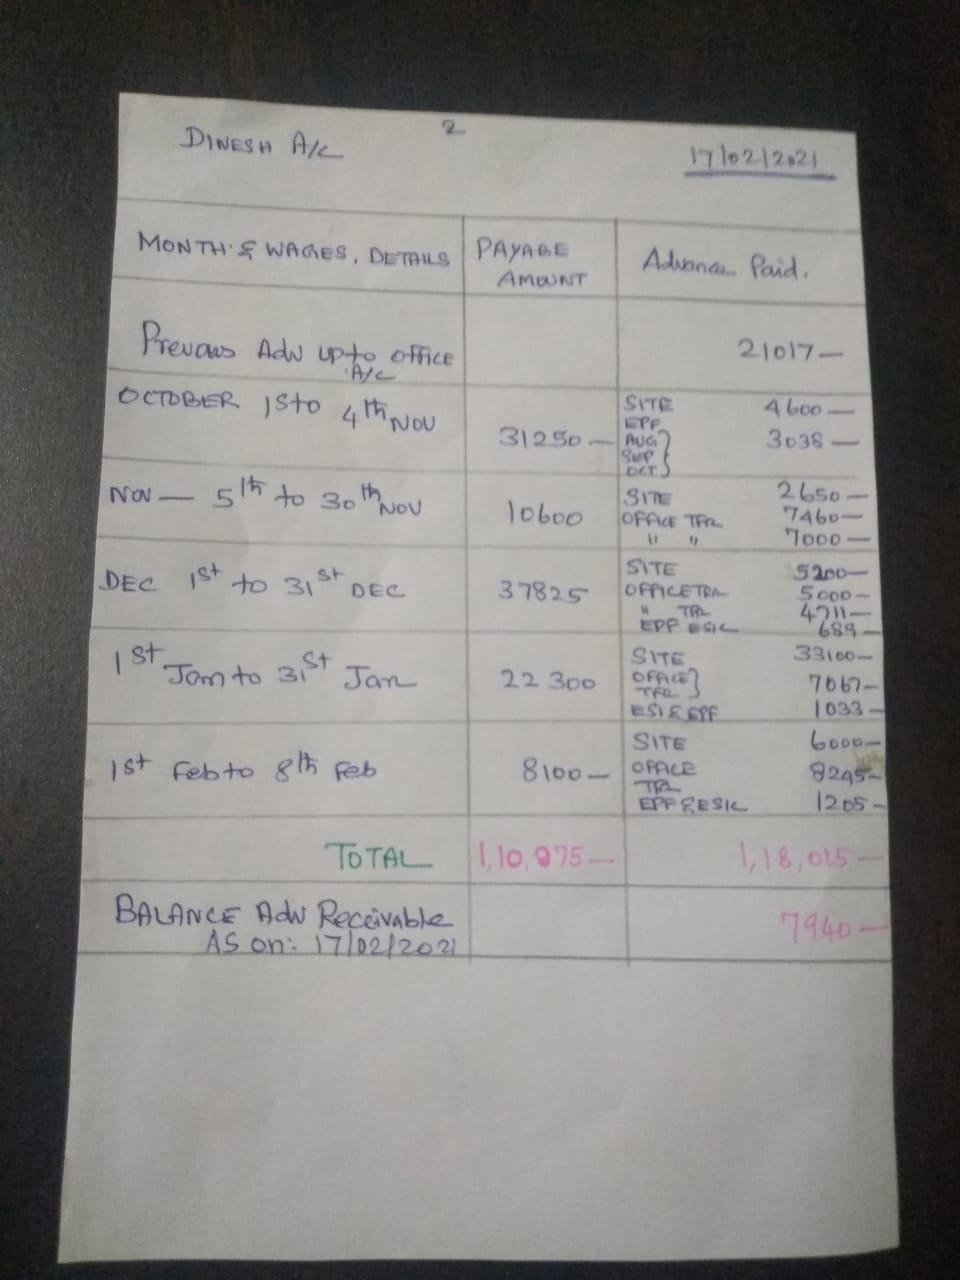 2
DINESH A/C
17/02/2021
MONTH & WAGES, DETAILS
PAYABE AMOUNT
Advance Paid.
Prevous Adv upto OFFICE A/C
21017—
OCTOBER 1st to 4th NOV
31250—
SITE 4600—
EPF
AUG } 3038—
SEP
OCT
NOV — 5th to 30th NOV
10600
SITE 2650—
OFFICE TFR 7460—
" " 7000—
DEC 1st to 31st DEC
37825
SITE 5200—
OFFICE TRL 5000—
" TRL 4711—
EPF ESIC 689—
1st Jan to 31st Jan
22300
SITE 33100—
OFFICE } 7067—
TFR
ESI & EPF 1033—
1st Feb to 8th Feb
8100—
SITE 6000—
OFFICE 8245—
TFR
EPF & ESIC 1205—
TOTAL 1,10,075— 1,18,015—
BALANCE Adv Receivable
AS on: 17/02/2021
7940—